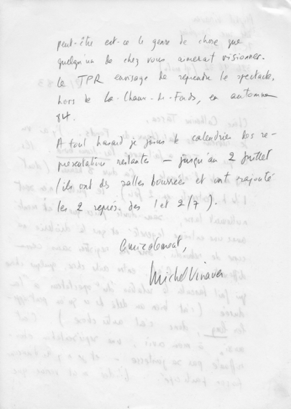 peut-être est-ce le genre de chose que
quelqu'un de chez vous aimerait visionner.
Le TPR envisage de reprendre le spectacle,
hors de La-Chaux-de-Fonds, en automne
84.
A tout hasard je joins le calendrier des re-
présentations restantes — jusqu'au 2 juillet
(ils ont des salles bourrées et ont rajouté
les 2 représ. des 1 et 2/7).
Amicalement,
Michel Vinaver